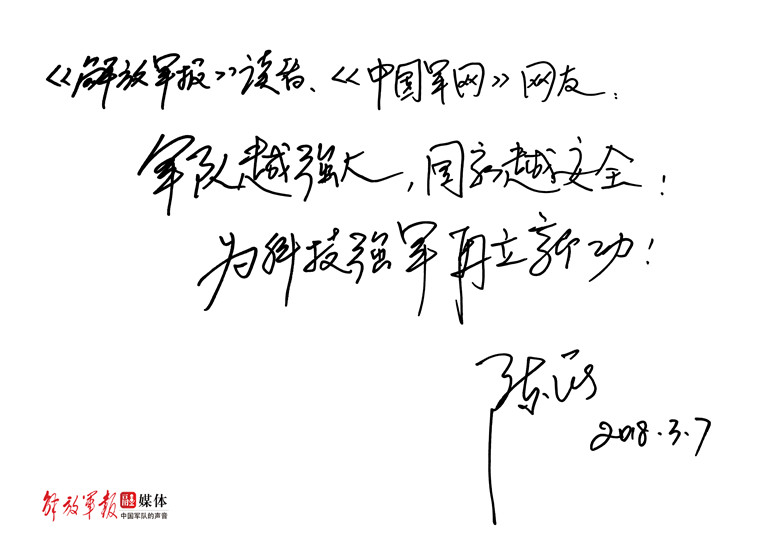 《解放军报》读者、《中国军网》网友：
军队越强大，国家越安全！
为科技强军再立新功！
陈
2018.3.7
解放军报融媒体
中国军队的声音